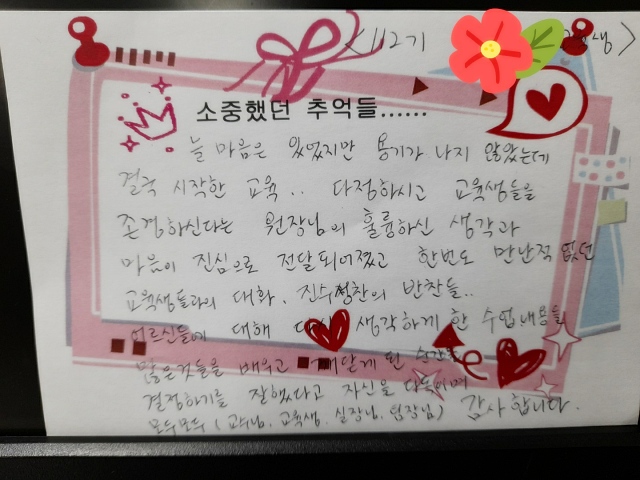 <112기 생>
소중했던 추억들......
늘 마음은 있었지만 용기가 나지 않았는데
결국 시작한 교육.. 다정하시고 교육생들을
존경하신다는 원장님의 훌륭하신 생각과
마음이 진심으로 전달되어졌고 한번도 만난적 없던
교육생들과의 대화. 진수성찬의 반찬들..
어르신들에 대해 다시 생각하게 한 수업내용들
많은것들을 배우고 깨닫게 된 순간들
결정하기를 잘했다고 자신을 다독이며
모두모두 (교수님. 교육생. 실장님. 팀장님) 감사합니다.